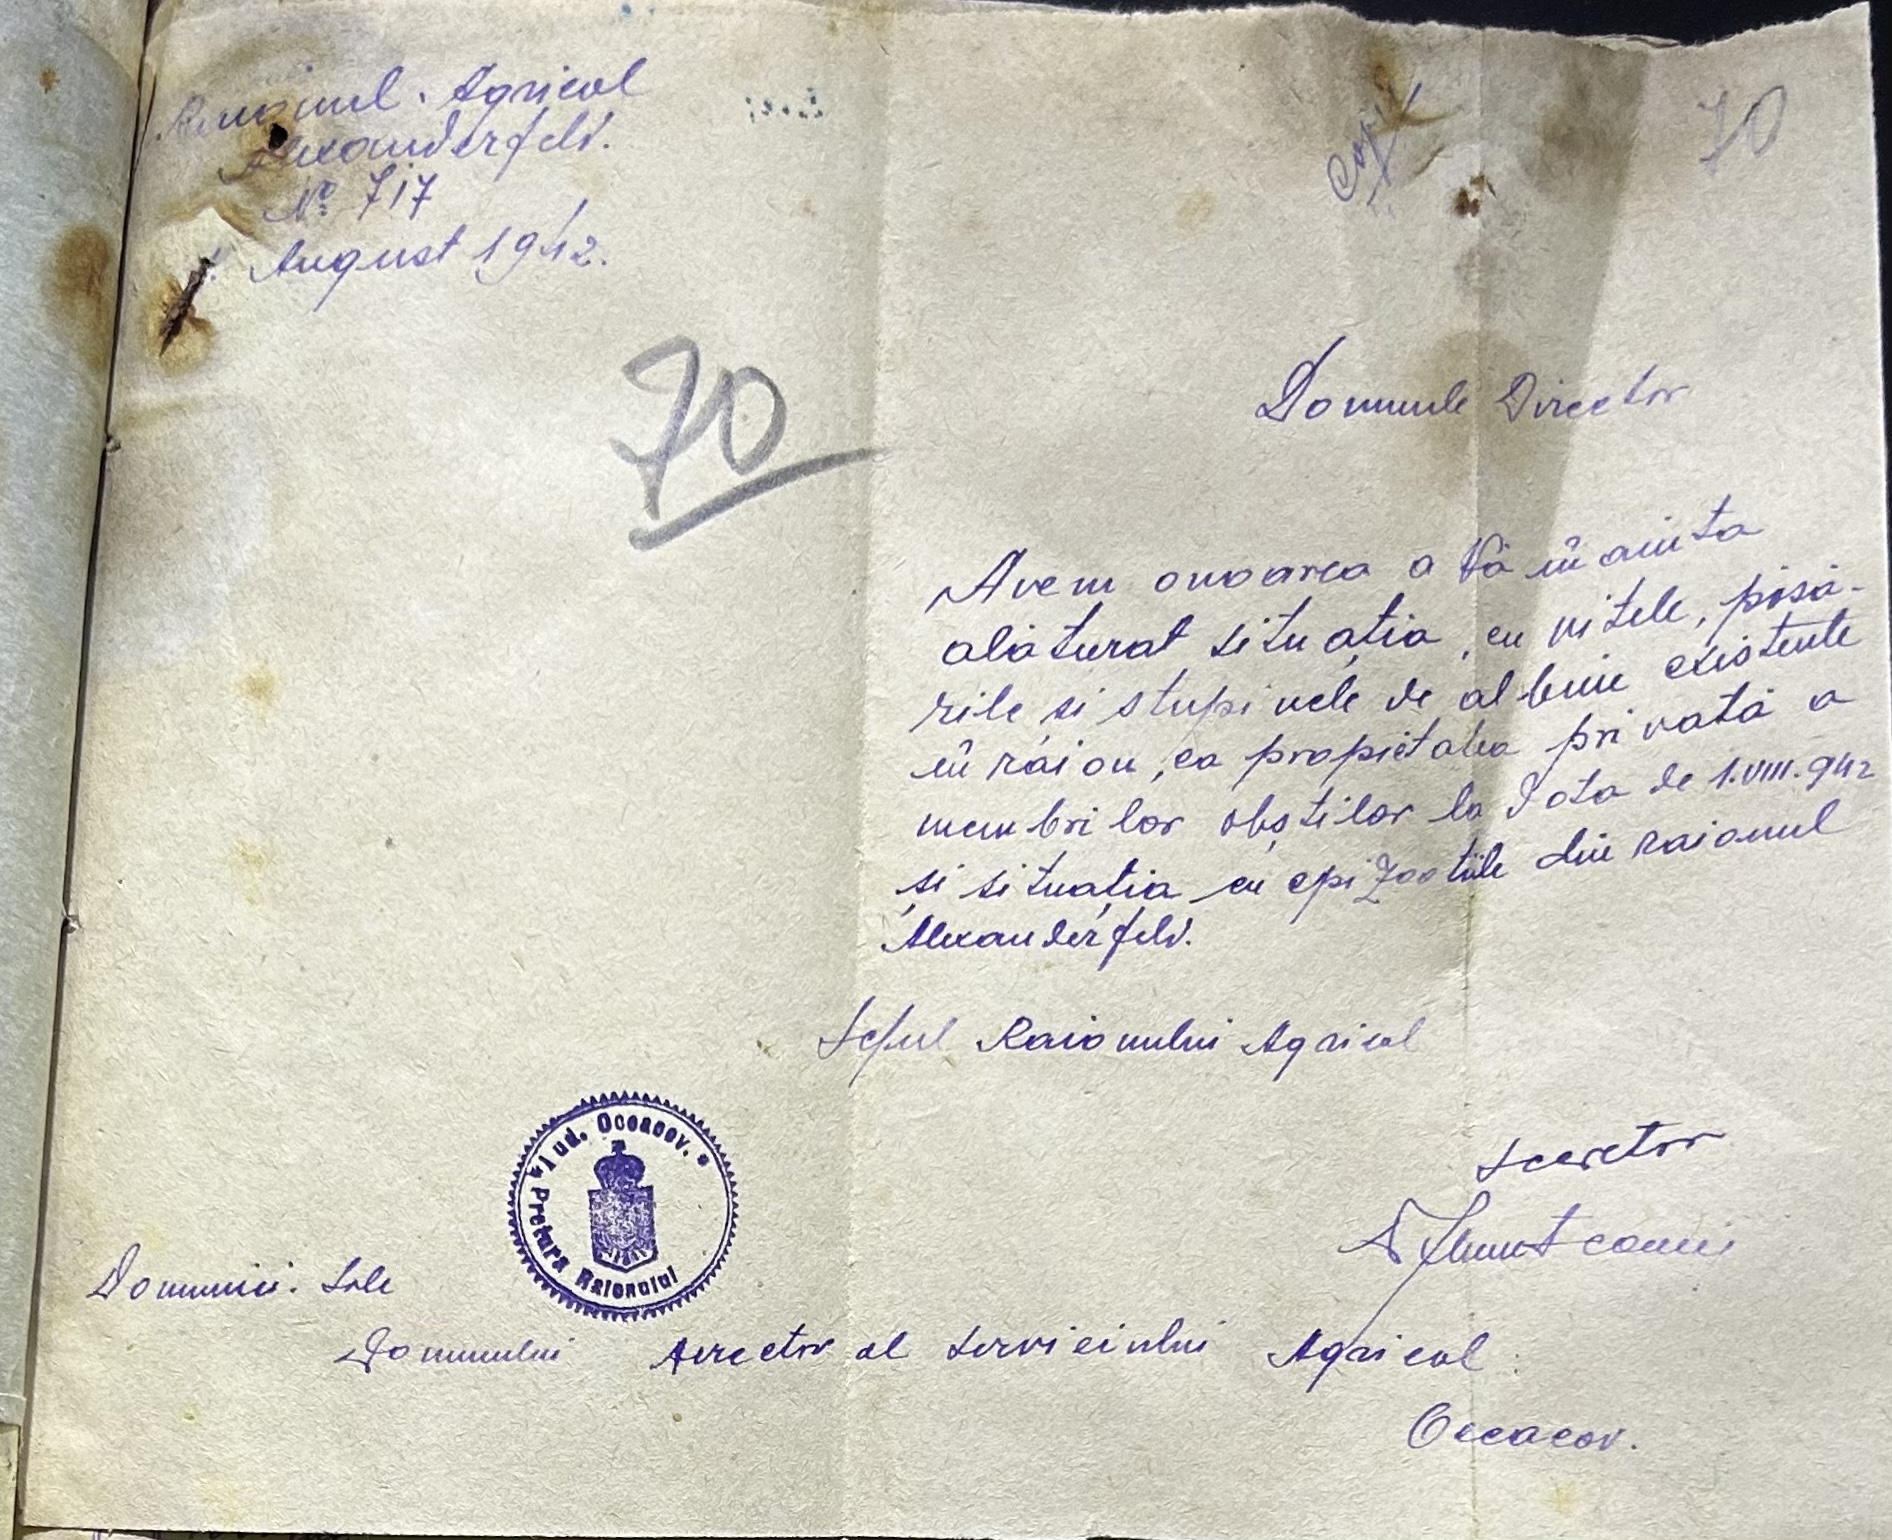 Raionul. Agricol
Alexanderfeld.
No 717
August 1942.
Copie
70
70
Domnule Director
Avem onoarea a Vă înainta
alăturat situația, cu vitele, păsă-
rile si stupinele de albine existente
în raion, ca proprietatea privată a
membrilor obștilor la data de 1.VIII.942
și situația cu epizootiile din raionul
Alexanderfeld.
Seful Raionului Agricol
Secretar
Jud. Oceacov.
Pretura Raionului
Domniei. Sale
Domnului Director al Serviciului Agricol
Oceacov.